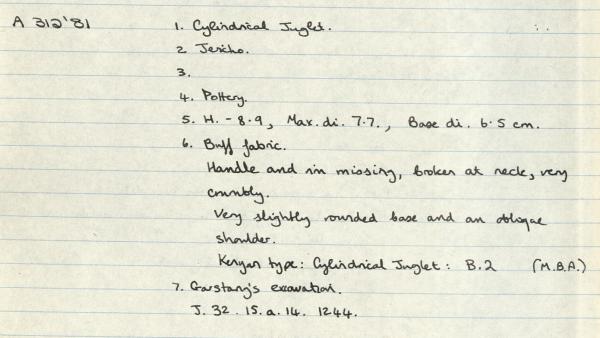 A 312'81
1. Cylindrical Juglet.
2 Jericho.
3.
4. Pottery.
5. H. - 8.9, Max. di. 7.7., Base di. 6.5 cm.
6. Buff fabric.
Handle and rim missing, broken at neck, very
crumbly.
Very slightly rounded base and an oblique
shoulder.
Kenyan type: Cylindrical Juglet: B.2 (M.B.A.)
7. Garstang's excavation.
J. 32. 15. a. 14. 1244.